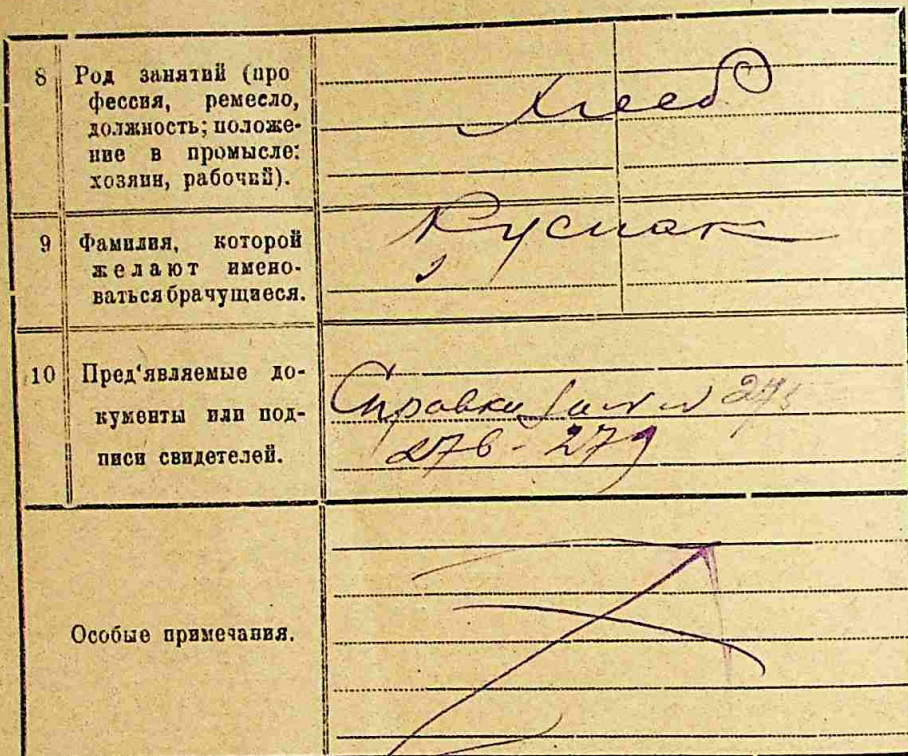 8 Род занятий (про
фессия, ремесло,
должность; положе-
ние в промысле:
хозяин, рабочий).
Хлеб
9 Фамилия, которой
желают имено-
ваться брачущиеся.
Руснак
10 Пред'являемые до-
кументы или под-
писи свидетелей.
Справки
276 - 279
Особые примечания.